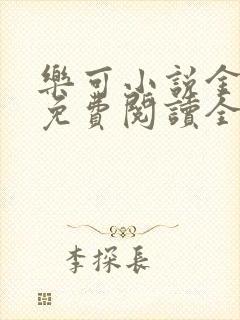 樂可小說全
免費閱讀全
李探長